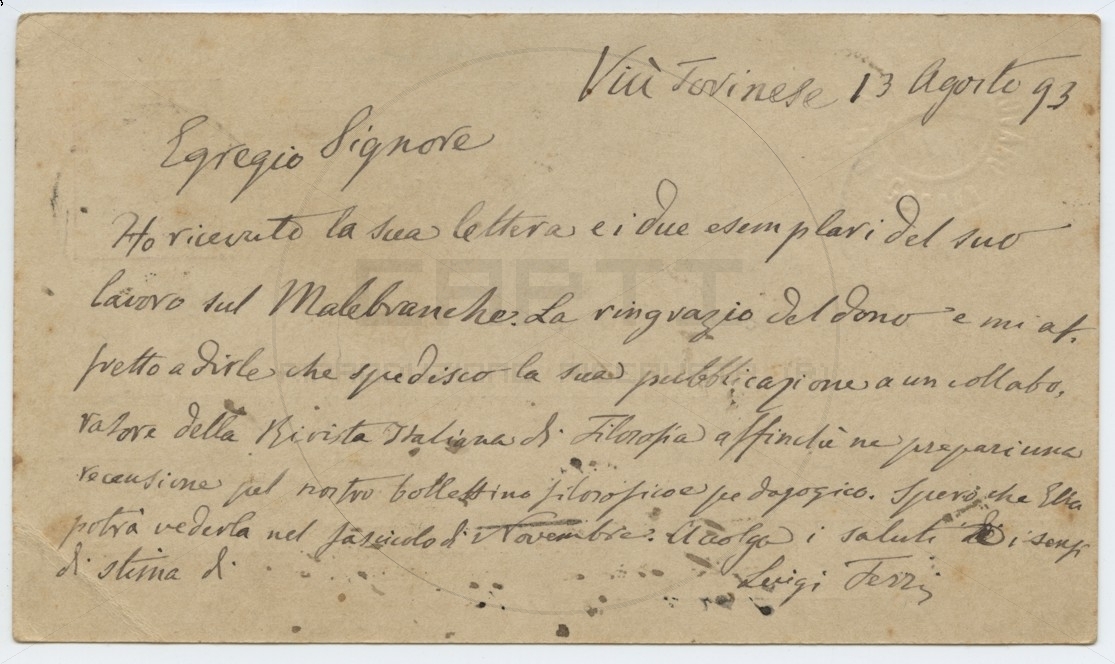 Viù Torinese 13 Agosto 93
Egregio Signore
Ho ricevuto la sua lettera e i due esemplari del suo
lavoro sul Malebranche. La ringrazio del dono e mi af-
fretto a dirle che spedisco la sua pubblicazione a un collabo-
ratore della Rivista Italiana di Filosofia affinchè ne prepari una
recensione pel nostro bollettino filosofico e pedagogico. Spero che Ella
potrà vederla nel fascicolo di Novembre. Accolga i saluti e i sensi
di stima di
Luigi Ferri